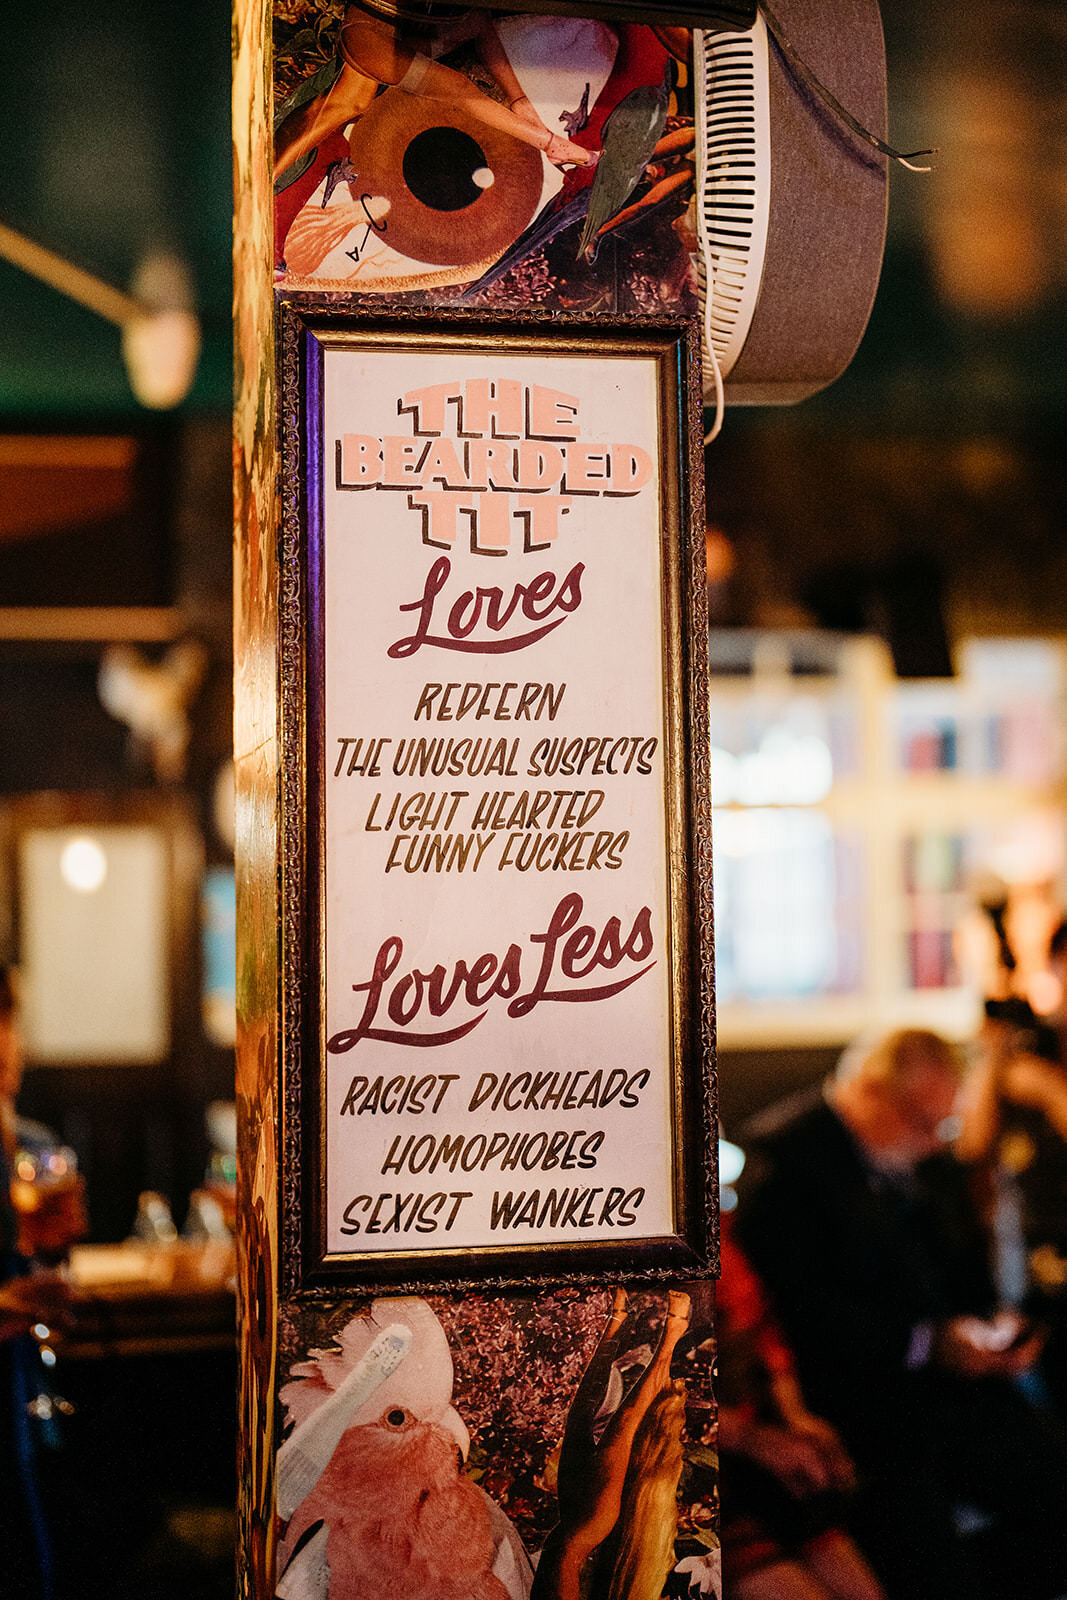 THE
BEARDED
TIT
Loves
REDFERN
THE UNUSUAL SUSPECTS
LIGHT HEARTED
FUNNY FUCKERS
Loves Less
RACIST DICKHEADS
HOMOPHOBES
SEXIST WANKERS